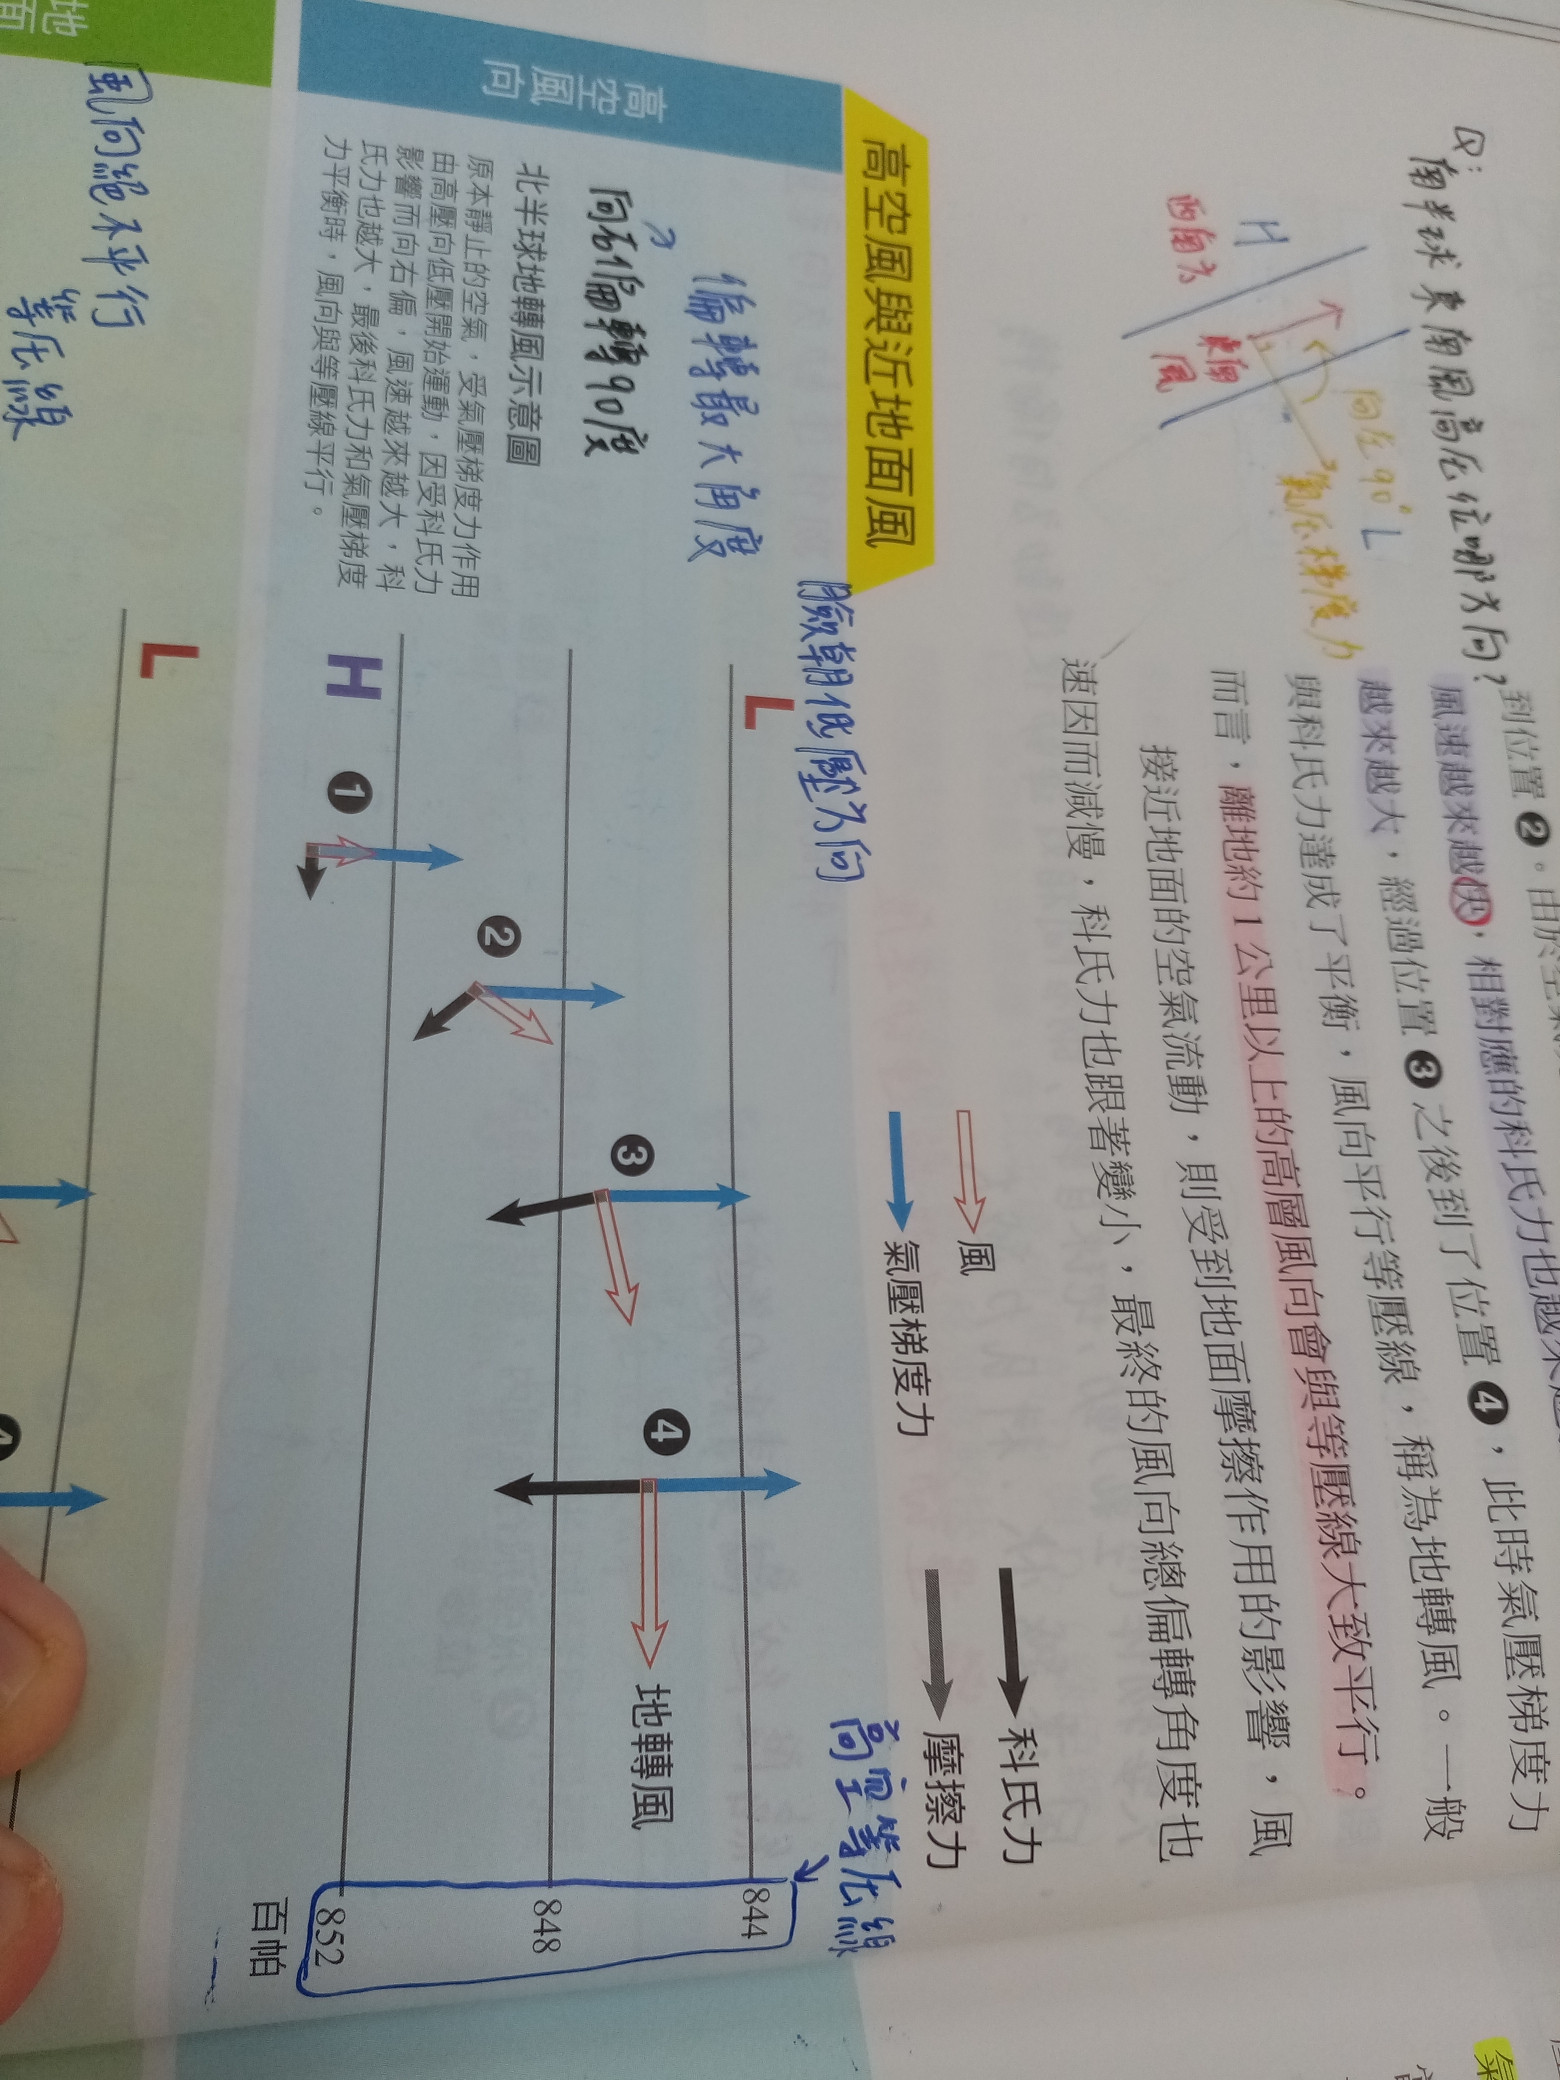 Q:
南半球東南風高压在哪方向?
H
西南方
東南
風
向左90°
L
氣压梯度力
到位置❷。由於空氣
風速越來越快,相對應的科氏力也越來越
越來越大,經過位置❸之後到了位置❹,此時氣壓梯度力
與科氏力達成了平衡,風向平行等壓線,稱為地轉風。一般
而言,離地約1公里以上的高層風向會與等壓線大致平行。
接近地面的空氣流動,則受到地面摩擦作用的影響,風
速因而減慢,科氏力也跟著變小,最終的風向總偏轉角度也
高空風與近地面風
臉朝低壓方向
風
氣壓梯度力
科氏力
摩擦力
高空風向
偏轉最大角度
向右偏轉90度
北半球地轉風示意圖
原本靜止的空氣,受氣壓梯度力作用
由高壓向低壓開始運動,因受科氏力
影響而向右偏,風速越來越大,科
氏力也越大,最後科氏力和氣壓梯度
力平衡時,風向與等壓線平行。
L
H
❶
❷
❸
❹
地轉風
高空等压線
844
848
852
百帕
地面
風向絕不平行
等压線
L